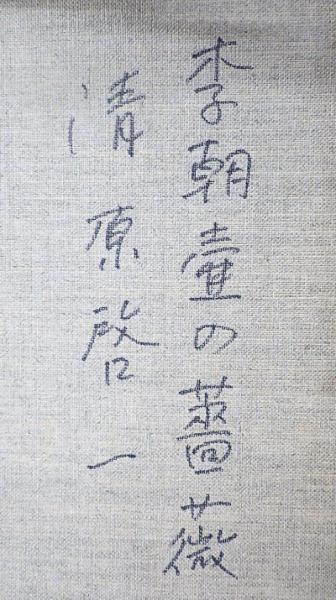 李朝壷の薔薇
清原啓一